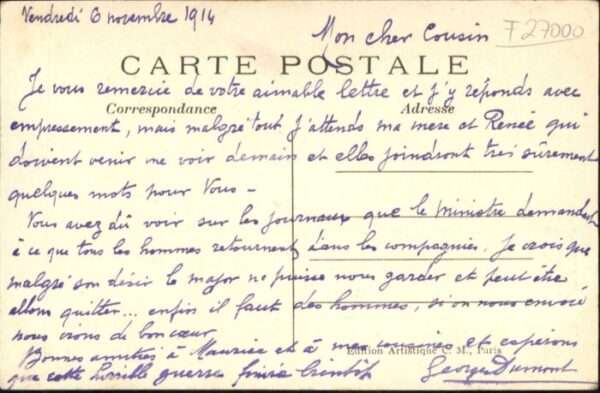 Vendredi 6 novembre 1914
F 27000
Mon cher Cousin
CARTE POSTALE
Je vous remercie de votre aimable lettre et j'y réponds avec
Correspondance
Adresse
empressement, mais malgré tout j'attends ma mère et Renée qui
doivent venir me voir demain et elles joindront très sûrement
quelques mots pour Vous -
Vous avez dû voir sur les journaux que le Ministre demandait
à ce que tous les hommes retournent dans les compagnies. Je crois que
malgré son désir le major ne puisse nous garder et peut être
allons quitter... enfin il faut des hommes, si on nous envoie
nous irons de bon cœur.
Edition Artistique C. M., Paris
Bonnes amitiés à Maurice et à mes cousines et espérons
que cette horrible guerre finira bientôt
Georges Dumont